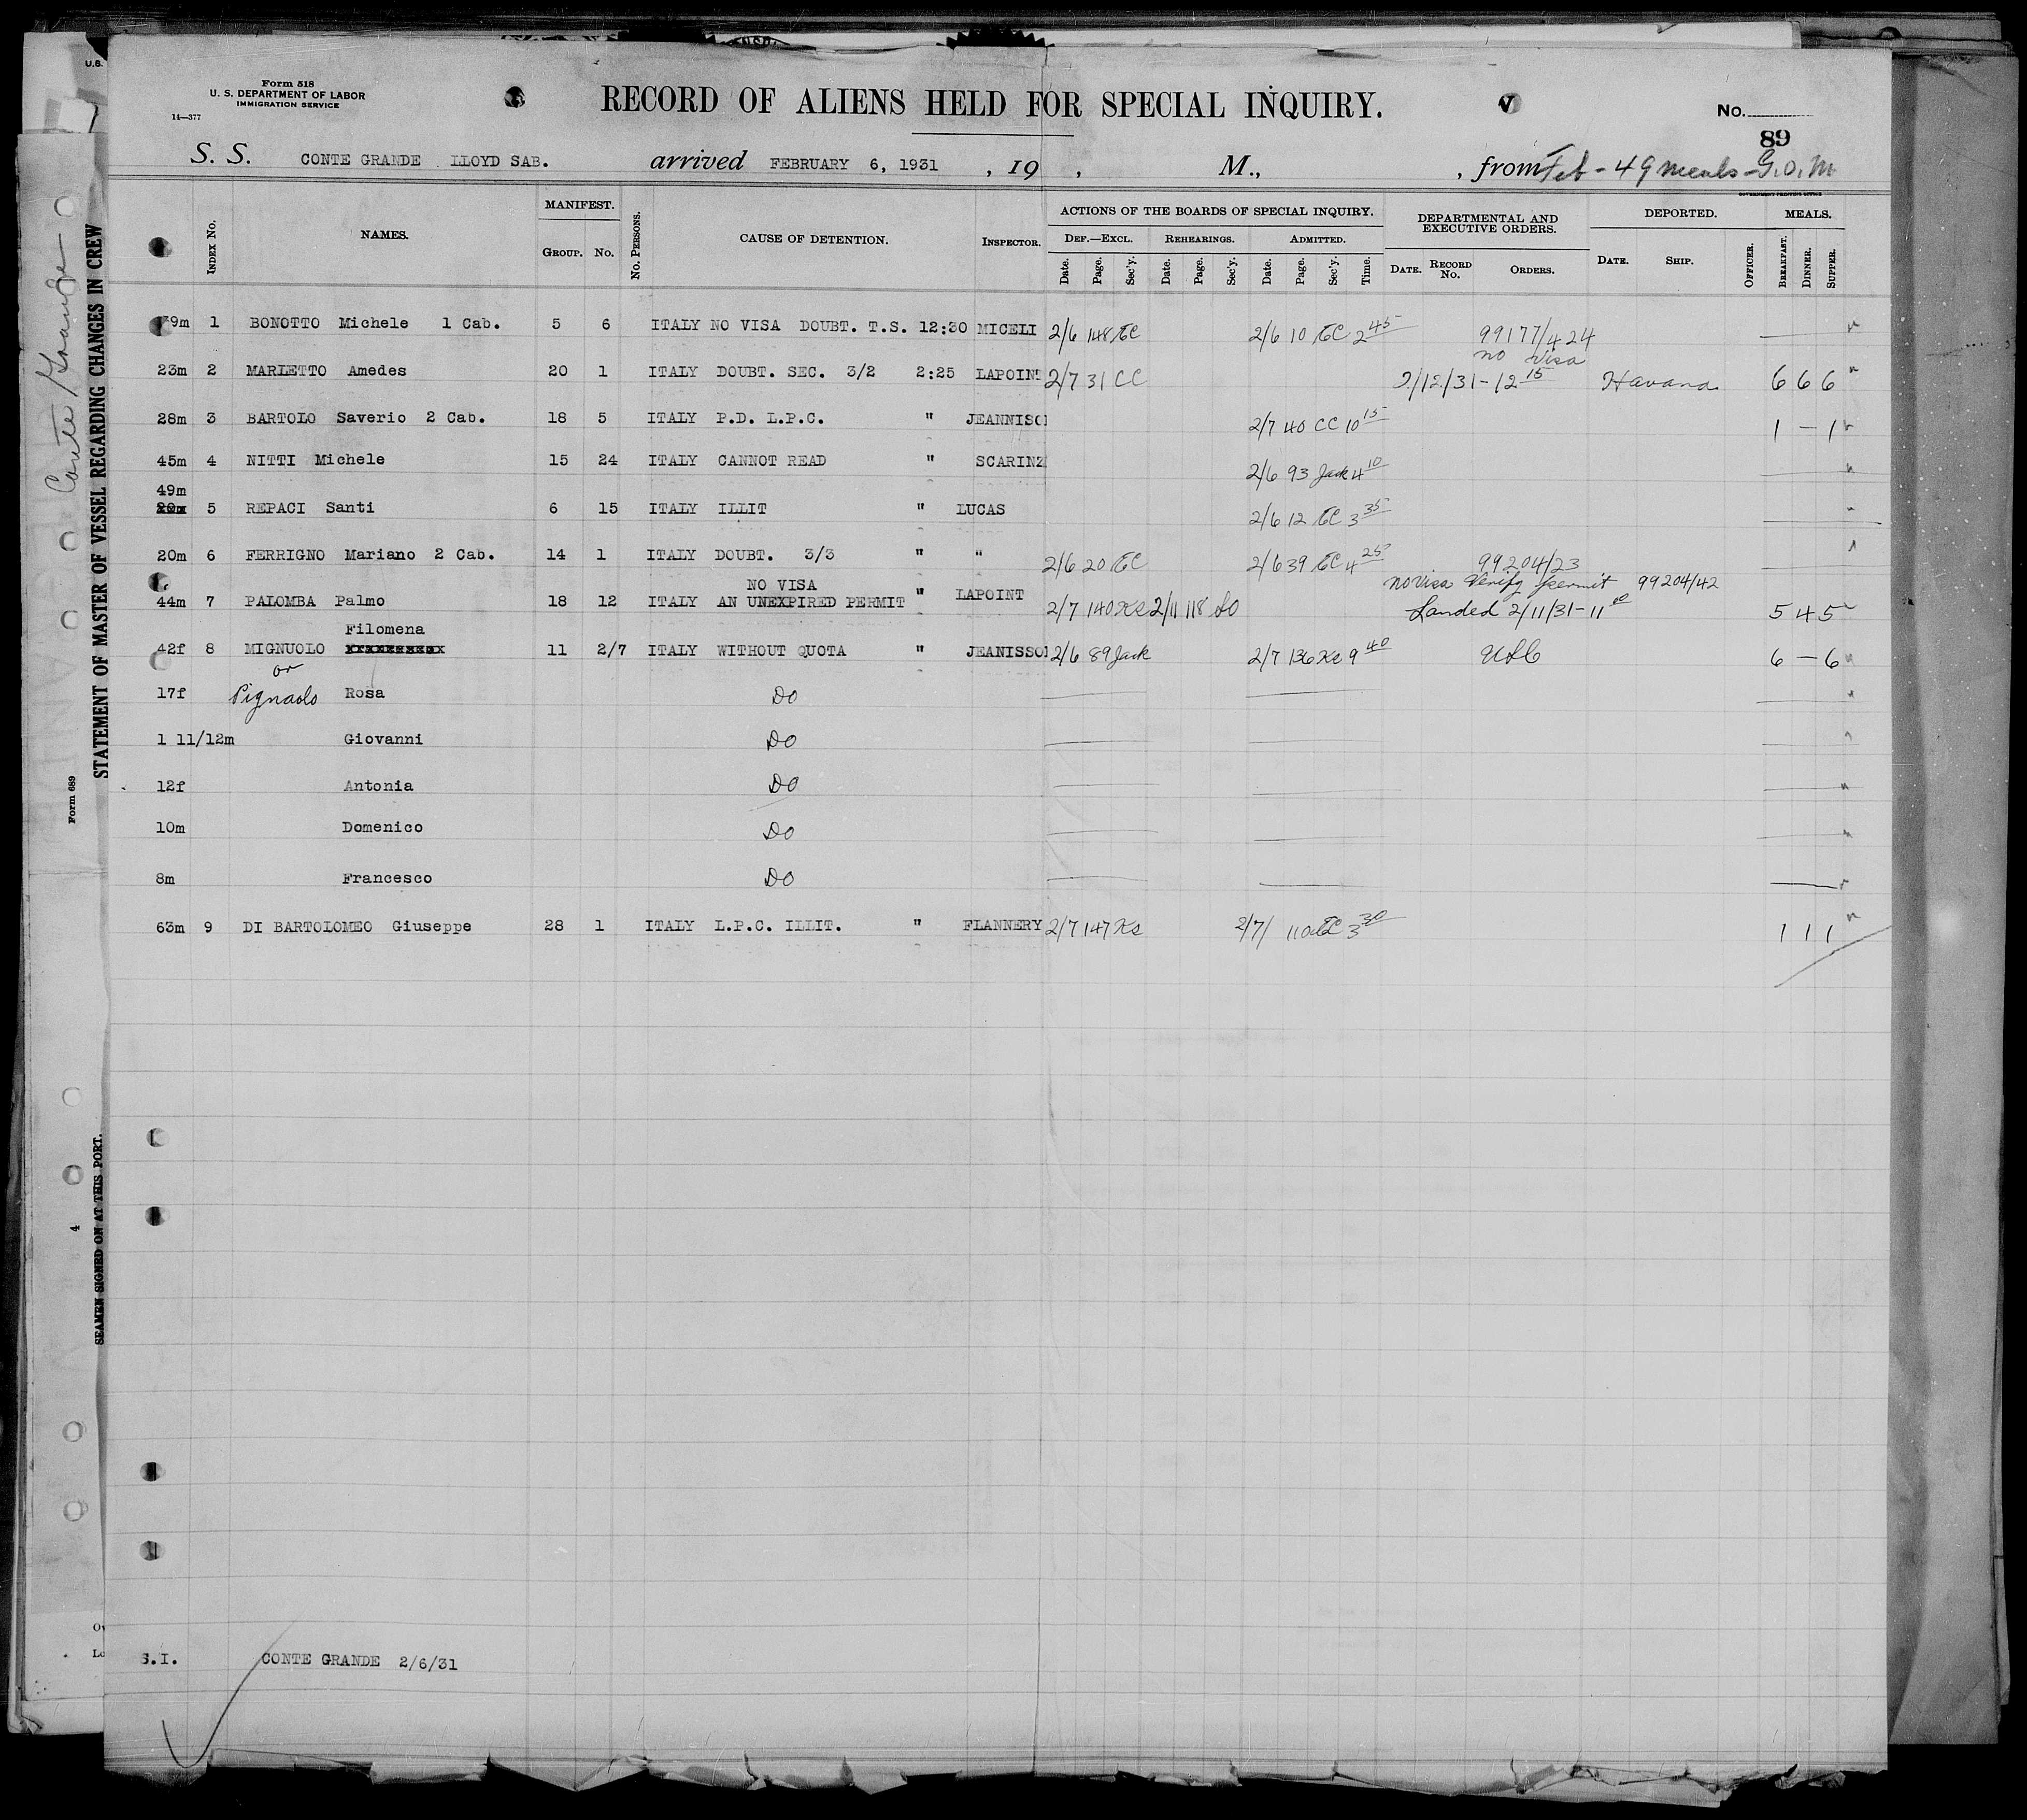 Form 518
U. S. DEPARTMENT OF LABOR
IMMIGRATION SERVICE
14—377
RECORD OF ALIENS HELD FOR SPECIAL INQUIRY.
No.
89
S. S. CONTE GRANDE LLOYD SAB. arrived FEBRUARY 6, 1931 , 19 , M., , from Feb - 49 meals - G.O.M
GOVERNMENT PRINTING OFFICE
INDEX No. NAMES. MANIFEST. GROUP. No. No. PERSONS. CAUSE OF DETENTION. INSPECTOR. ACTIONS OF THE BOARDS OF SPECIAL INQUIRY. DEF.—EXCL. Date. Page. Sec'y. REHEARINGS. Date. Page. Sec'y. ADMITTED. Date. Page. Sec'y. Time. DEPARTMENTAL AND EXECUTIVE ORDERS. DATE. RECORD No. ORDERS. DEPORTED. DATE. SHIP. OFFICER. MEALS. BREAKFAST. DINNER. SUPPER.
39m 1 BONOTTO Michele 1 Cab. 5 6 ITALY NO VISA DOUBT. T.S. 12:30 MICELI 2/6 148 EC 2/6 10 EC 2 45 99177/424
no visa
23m 2 MARLETTO Amedes 20 1 ITALY DOUBT. SEC. 3/2 2:25 LAPOINT 2/7 31 CC 2/12/31 - 12 15 Havana 6 6 6
28m 3 BARTOLO Saverio 2 Cab. 18 5 ITALY P.D. L.P.C. " JEANNISO 2/7 40 CC 10 15 1 — 1
45m 4 NITTI Michele 15 24 ITALY CANNOT READ " SCARINZ 2/6 93 Jack 4 10
49m
5 REPACI Santi 6 15 ITALY ILLIT " LUCAS 2/6 12 EC 3 35
20m 6 FERRIGNO Mariano 2 Cab. 14 1 ITALY DOUBT. 3/3 " " 2/6 20 EC 2/6 39 EC 4 25 99204/23
NO VISA no visa Verify permit 99204/42
44m 7 PALOMBA Palmo 18 12 ITALY AN UNEXPIRED PERMIT " LAPOINT 2/7 140 Ks 2/11 118 SO Landed 2/11/31 - 11 00 5 4 5
Filomena
42f 8 MIGNUOLO 11 2/7 ITALY WITHOUT QUOTA " JEANISSO 2/6 89 Jack 2/7 136 Ks 9 40 6 — 6
or
17f Pignaolo Rosa Do
1 11/12m Giovanni Do
12f Antonia Do
10m Domenico Do
8m Francesco Do
63m 9 DI BARTOLOMEO Giuseppe 28 1 ITALY L.P.C. ILLIT. " FLANNERY 2/7 147 Ks 2/7/ 110 EC 3 30 1 1 1
S.I. CONTE GRANDE 2/6/31
U.S.
Conte Grande
STATEMENT OF MASTER OF VESSEL REGARDING CHANGES IN CREW
Form 689
SEAMEN SIGNED ON AT THIS PORT.
4